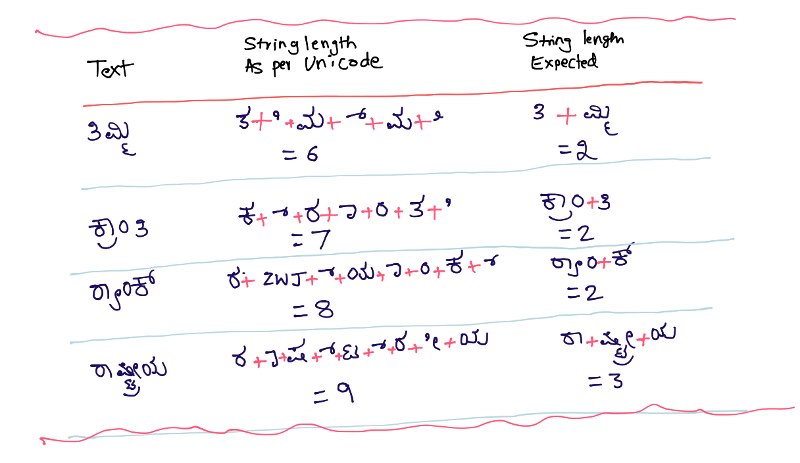 Text
String length
As per Unicode
String length
Expected
ತಿಮ್ಮಿ
ತ+ ಿ+ಮ+ ್+ಮ+ ಿ
=6
ತಿ + ಮ್ಮಿ
=2
ಕ್ರಾಂತಿ
ಕ+ ್+ರ+ ಾ+ ಂ+ತ+ ಿ
=7
ಕ್ರಾಂ+ತಿ
=2
ರ‍್ಯಾಂಕ್
ರ+ ZWJ+ ್+ಯ+ ಾ+ ಂ+ಕ+ ್
=8
ರ‍್ಯಾಂ+ಕ್
=2
ರಾಷ್ಟ್ರೀಯ
ರ+ ಾ+ಷ+ ್+ಟ+ ್+ರ+ ೀ+ಯ
=9
ರಾ+ಷ್ಟ್ರೀ+ಯ
=3